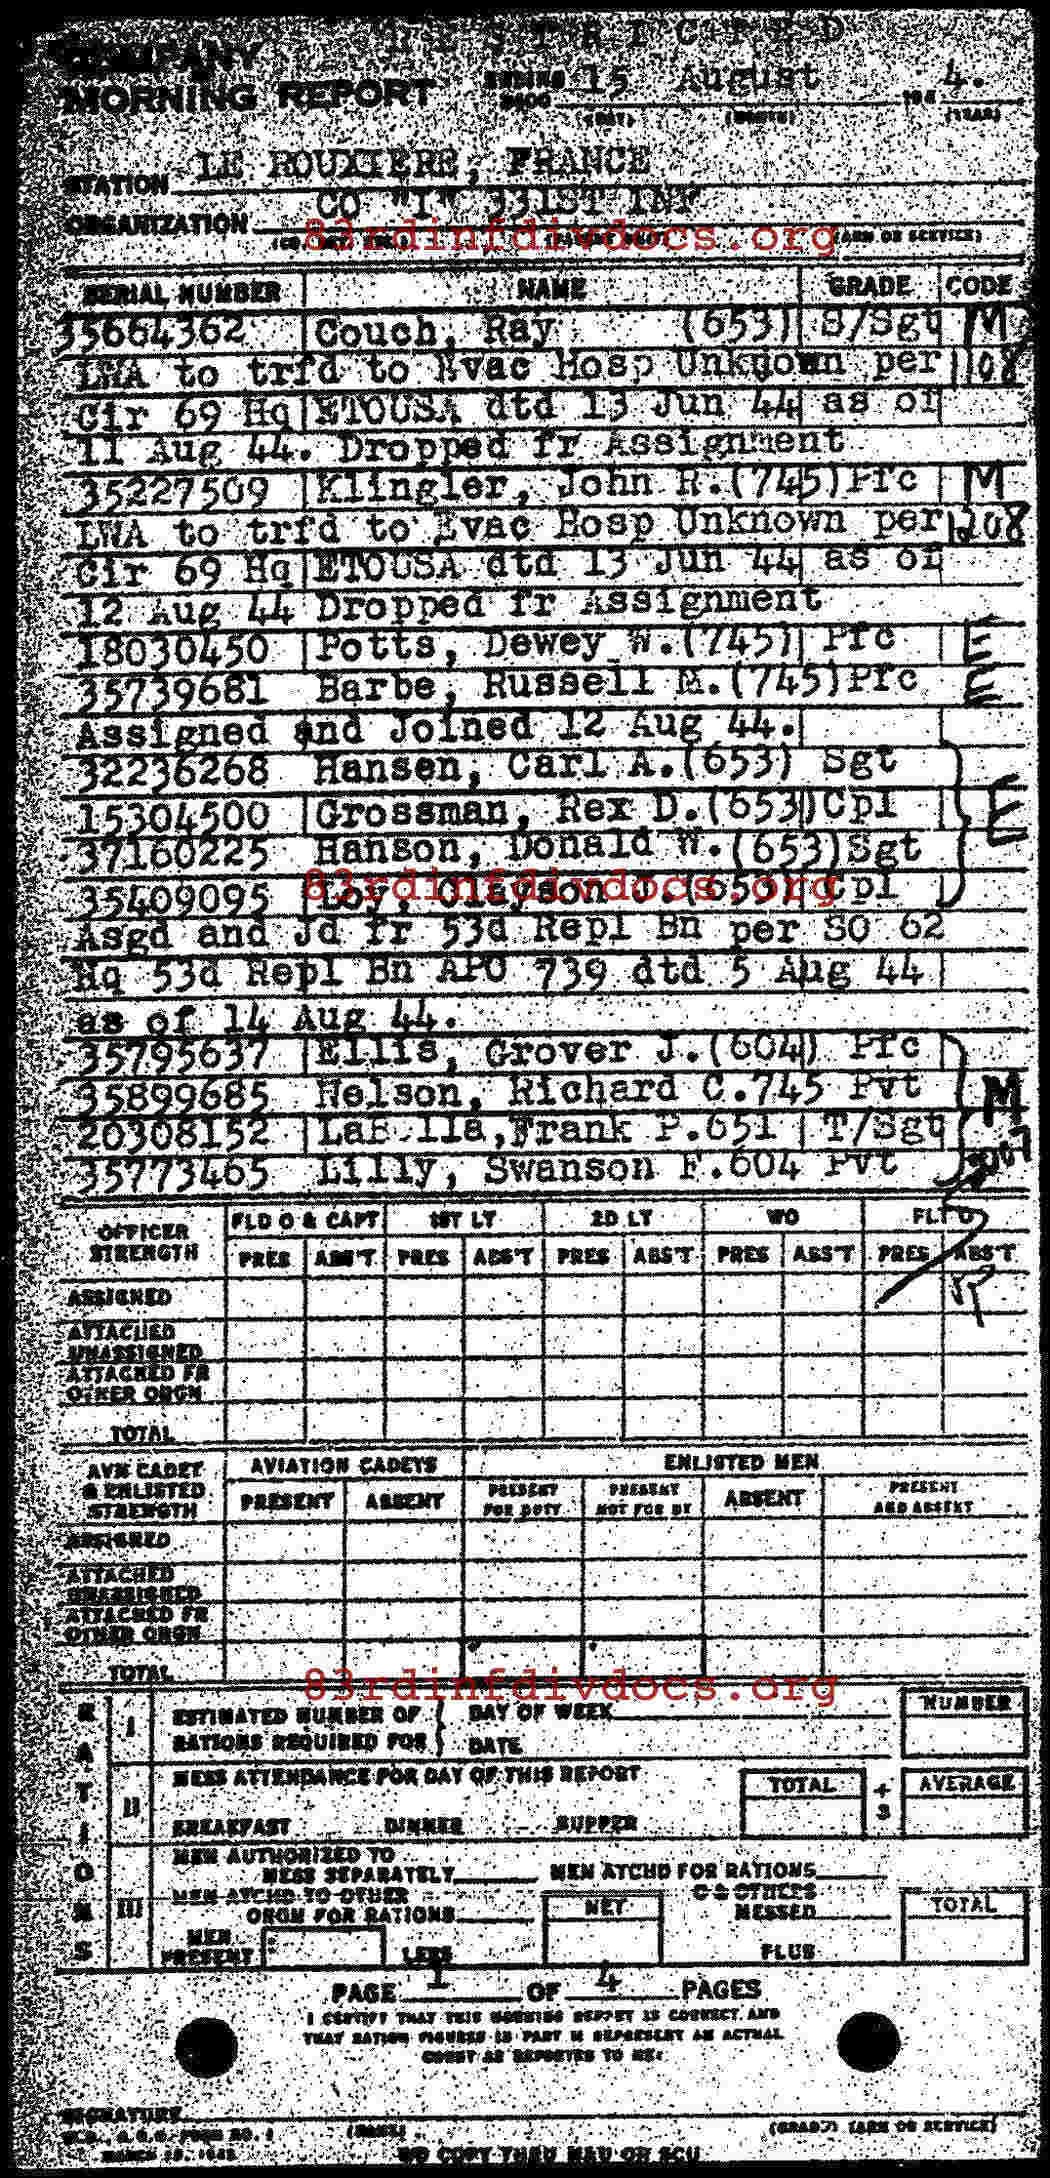 RESTRICTED
COMPANY
MORNING REPORT
ENDING 2400 15 August 194 4.
(DAY) (MONTH) (YEAR)
STATION LE ROUXIERE, FRANCE
ORGANIZATION CO "I" 331ST INF
83rdinfdivdocs.org
(ARM OR SERVICE)
SERIAL NUMBER NAME GRADE CODE
35664362 Couch, Ray (653) S/Sgt M
LWA to trfd to Evac Hosp Unknown per 1108
Cir 69 Hq ETOUSA dtd 13 Jun 44 as of
11 Aug 44. Dropped fr Assignment
35227509 Klingler, John R.(745)Pfc M
LWA to trfd to Evac Hosp Unknown per 1208
Cir 69 Hq ETOUSA dtd 13 Jun 44 as of
12 Aug 44 Dropped fr Assignment
18030450 Potts, Dewey W.(745) Pfc E
35739681 Barbe, Russell M.(745)Pfc E
Assigned and Joined 12 Aug 44.
32236268 Hansen, Carl A.(653) Sgt
15304500 Grossman, Rex D.(653)Cpl E
37160225 Hanson, Donald W.(653)Sgt
35409095 Loy, Grayson Cpl
83rdinfdivdocs.org
Asgd and Jd fr 53d Repl Bn per SO 62
Hq 53d Repl Bn APO 739 dtd 5 Aug 44
as of 14 Aug 44.
35795637 Ellis, Grover J.(604) Pfc
35899685 Nelson, Richard C.745 Pvt M
20308152 LaBella,Frank P.651 T/Sgt
35773465 Lilly, Swanson F.604 Pvt
OFFICER STRENGTH FLD O & CAPT 1ST LT 2D LT WO FLT O
PRES ABS'T PRES ABS'T PRES ABS'T PRES ABS'T PRES ABS'T
ASSIGNED
ATTACHED UNASSIGNED
ATTACHED FR OTHER ORGN
TOTAL
AVN CADET & ENLISTED STRENGTH AVIATION CADETS ENLISTED MEN
PRESENT ABSENT PRESENT FOR DUTY PRESENT NOT FOR DY ABSENT PRESENT AND ABSENT
ASSIGNED
ATTACHED UNASSIGNED
ATTACHED FR OTHER ORGN
TOTAL
83rdinfdivdocs.org
RATIONS
I ESTIMATED NUMBER OF RATIONS REQUIRED FOR DAY OF WEEK DATE NUMBER
II MESS ATTENDANCE FOR DAY OF THIS REPORT TOTAL ÷ 3 AVERAGE
BREAKFAST DINNER SUPPER
III MEN AUTHORIZED TO MESS SEPARATELY MEN ATCHD FOR RATIONS
MEN ATCHD TO OTHER ORGN FOR RATIONS NET O & OTHERS MESSED TOTAL
MEN PRESENT LESS PLUS
PAGE 1 OF 4 PAGES
I CERTIFY THAT THIS MORNING REPORT IS CORRECT AND
THAT RATION FIGURES IN PART III REPRESENT AN ACTUAL
COUNT AS REPORTED TO ME:
SIGNATURE
(NAME) (GRADE) (ARM OR SERVICE)
W.D., A.G.O. FORM NO. 1
MARCH
NO COPY THRU MRU OR SCU